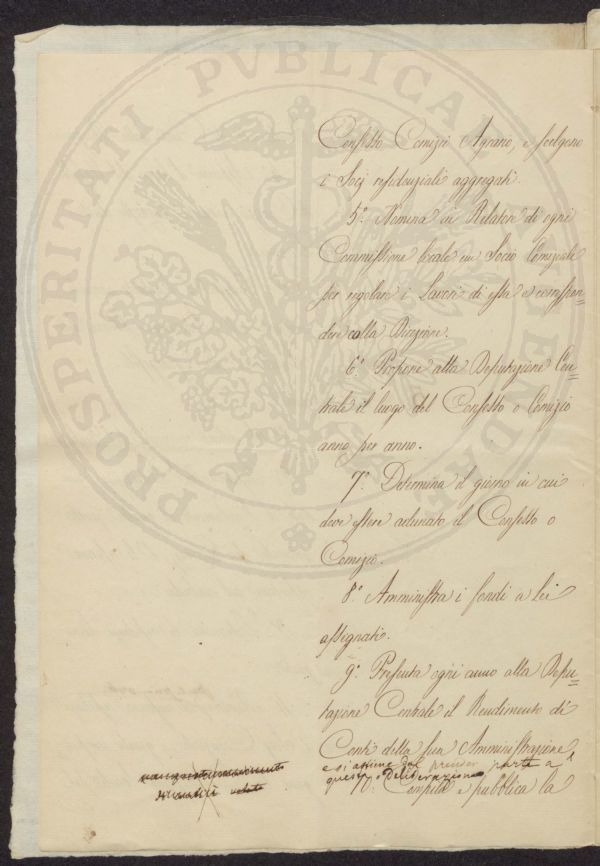 PROSPERITATI PVBLICAE
Consesso Comizio Agrario, e scelgono
i Socj residenziali aggregati.
5.° Nomina in Relatore di ogni
Commissione locale un Socio Comiziale
per regolare i Lavori di essa e corrispon=
dere colla Direzione.
6.° Propone alla Deputazione Cen=
trale il luogo del Consesso o Comizio
anno per anno.
7.° Determina il giorno in cui
deve essere adunato il Consesso o
Comizio.
8.° Amministra i fondi a Lei
assegnati.
9.° Presenta ogni anno alla Depu=
tazione Centrale il Rendimento di
Conti della sua Amministrazione
e si astiene dal prender parte a
questa Deliberazione
10.° Compila e pubblica la